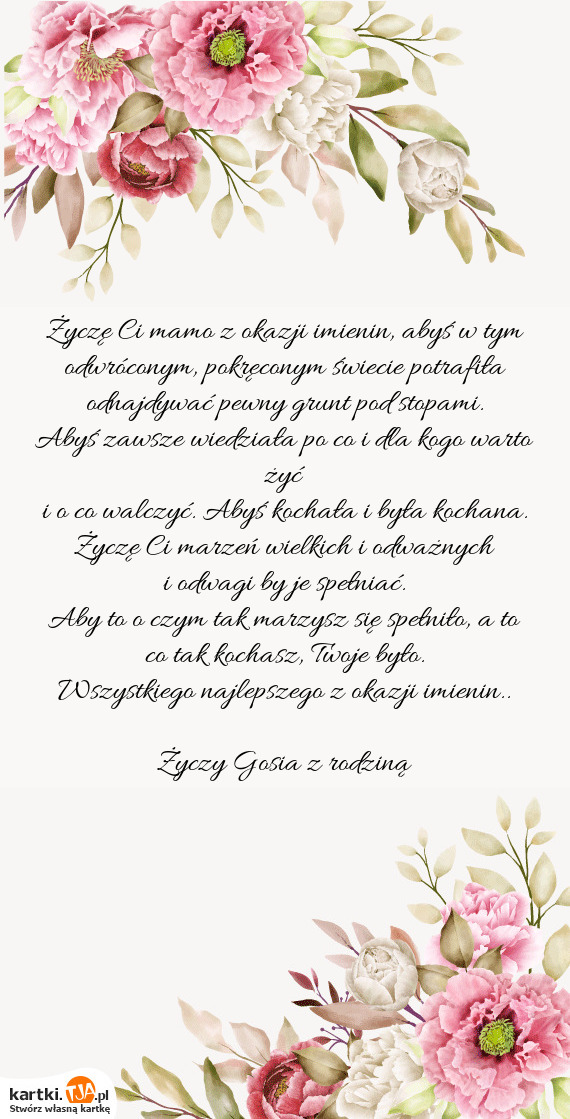 Życzę Ci mamo z okazji imienin, abyś w tym
odwróconym, pokręconym świecie potrafiła
odnajdywać pewny grunt pod stopami.
Abyś zawsze wiedziała po co i dla kogo warto
żyć
i o co walczyć. Abyś kochała i była kochana.
Życzę Ci marzeń wielkich i odważnych
i odwagi by je spełniać.
Aby to o czym tak marzysz się spełniło, a to
co tak kochasz, Twoje było.
Wszystkiego najlepszego z okazji imienin..
Życzy Gosia z rodziną
kartki.TJA.pl
Stwórz własną kartkę